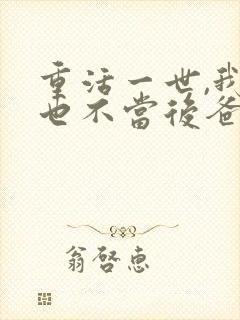 重活一世,我
也不當後爸
翁啓惠